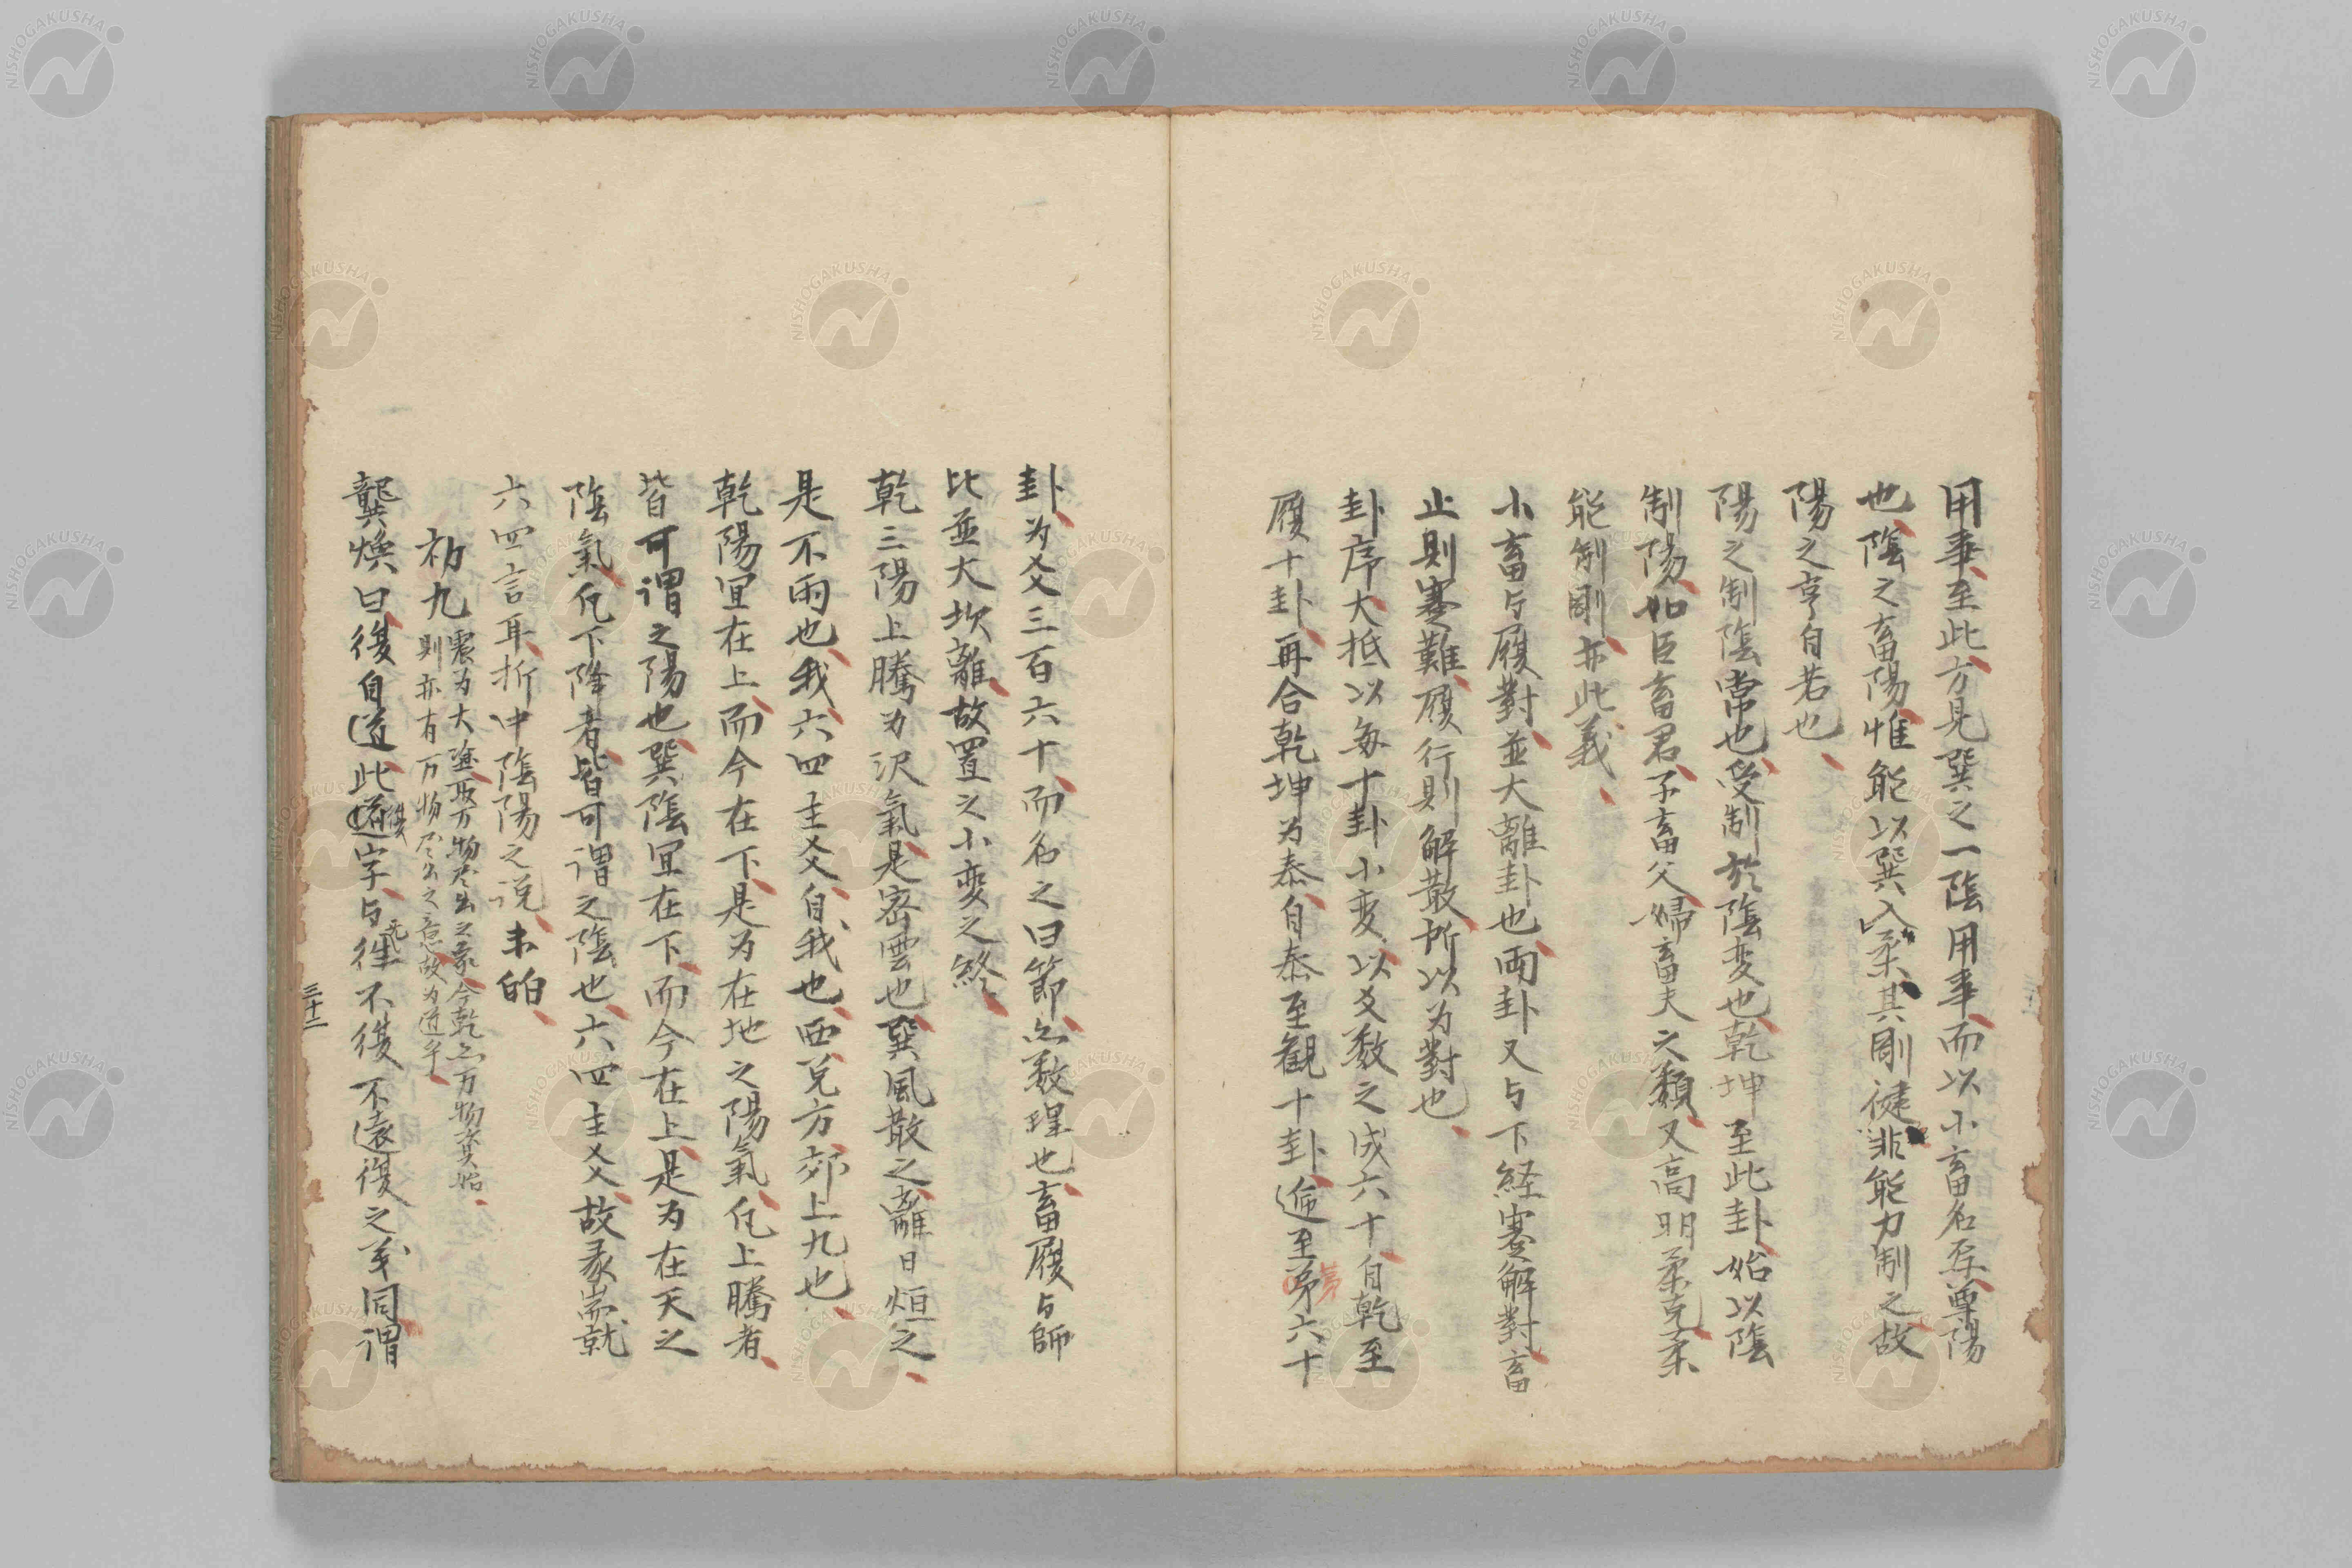 用事至此方見巽之一陰用事而以小畜名卦尊陽
也陰之畜陽惟能以巽入柔其剛健非能力制之故
陽之亨自若也
陽之制陰常也受制於陰変也乾坤至此卦始以陰
制陽如臣畜君子畜父婦畜夫之類又高明柔克柔
能制剛亦此義
小畜与履對並大離卦也両卦又与下経蹇解對畜
止則蹇難履行則解散所以为對也
卦序大抵以每十卦小変以爻数之成六十自乾至
履十卦再合乾坤为泰自泰至観十卦通至第六十
第
卦为爻三百六十而名之曰節亦数理也畜履与師
比並大坎離故置之小変之終
乾三陽上騰为沢氣是密雲也巽風散之離日烜之
是不雨也我六四主爻自我也西兌方郊上九也
乾陽宜在上而今在下是为在地之陽氣凡上騰者
皆可謂之陽也巽陰宜在下而今在上是为在天之
陰氣凡下降者皆可謂之陰也六四主爻故彖耑就
六四言耳折中陰陽之説未的
初九
震为大塗取万物尽出之象今乾亦万物資始
則亦有万物尽出之意故为道乎
龔煥曰復自道此復道字与无往不復不遠復之义同謂
三十二
NISHOGAKUSHA